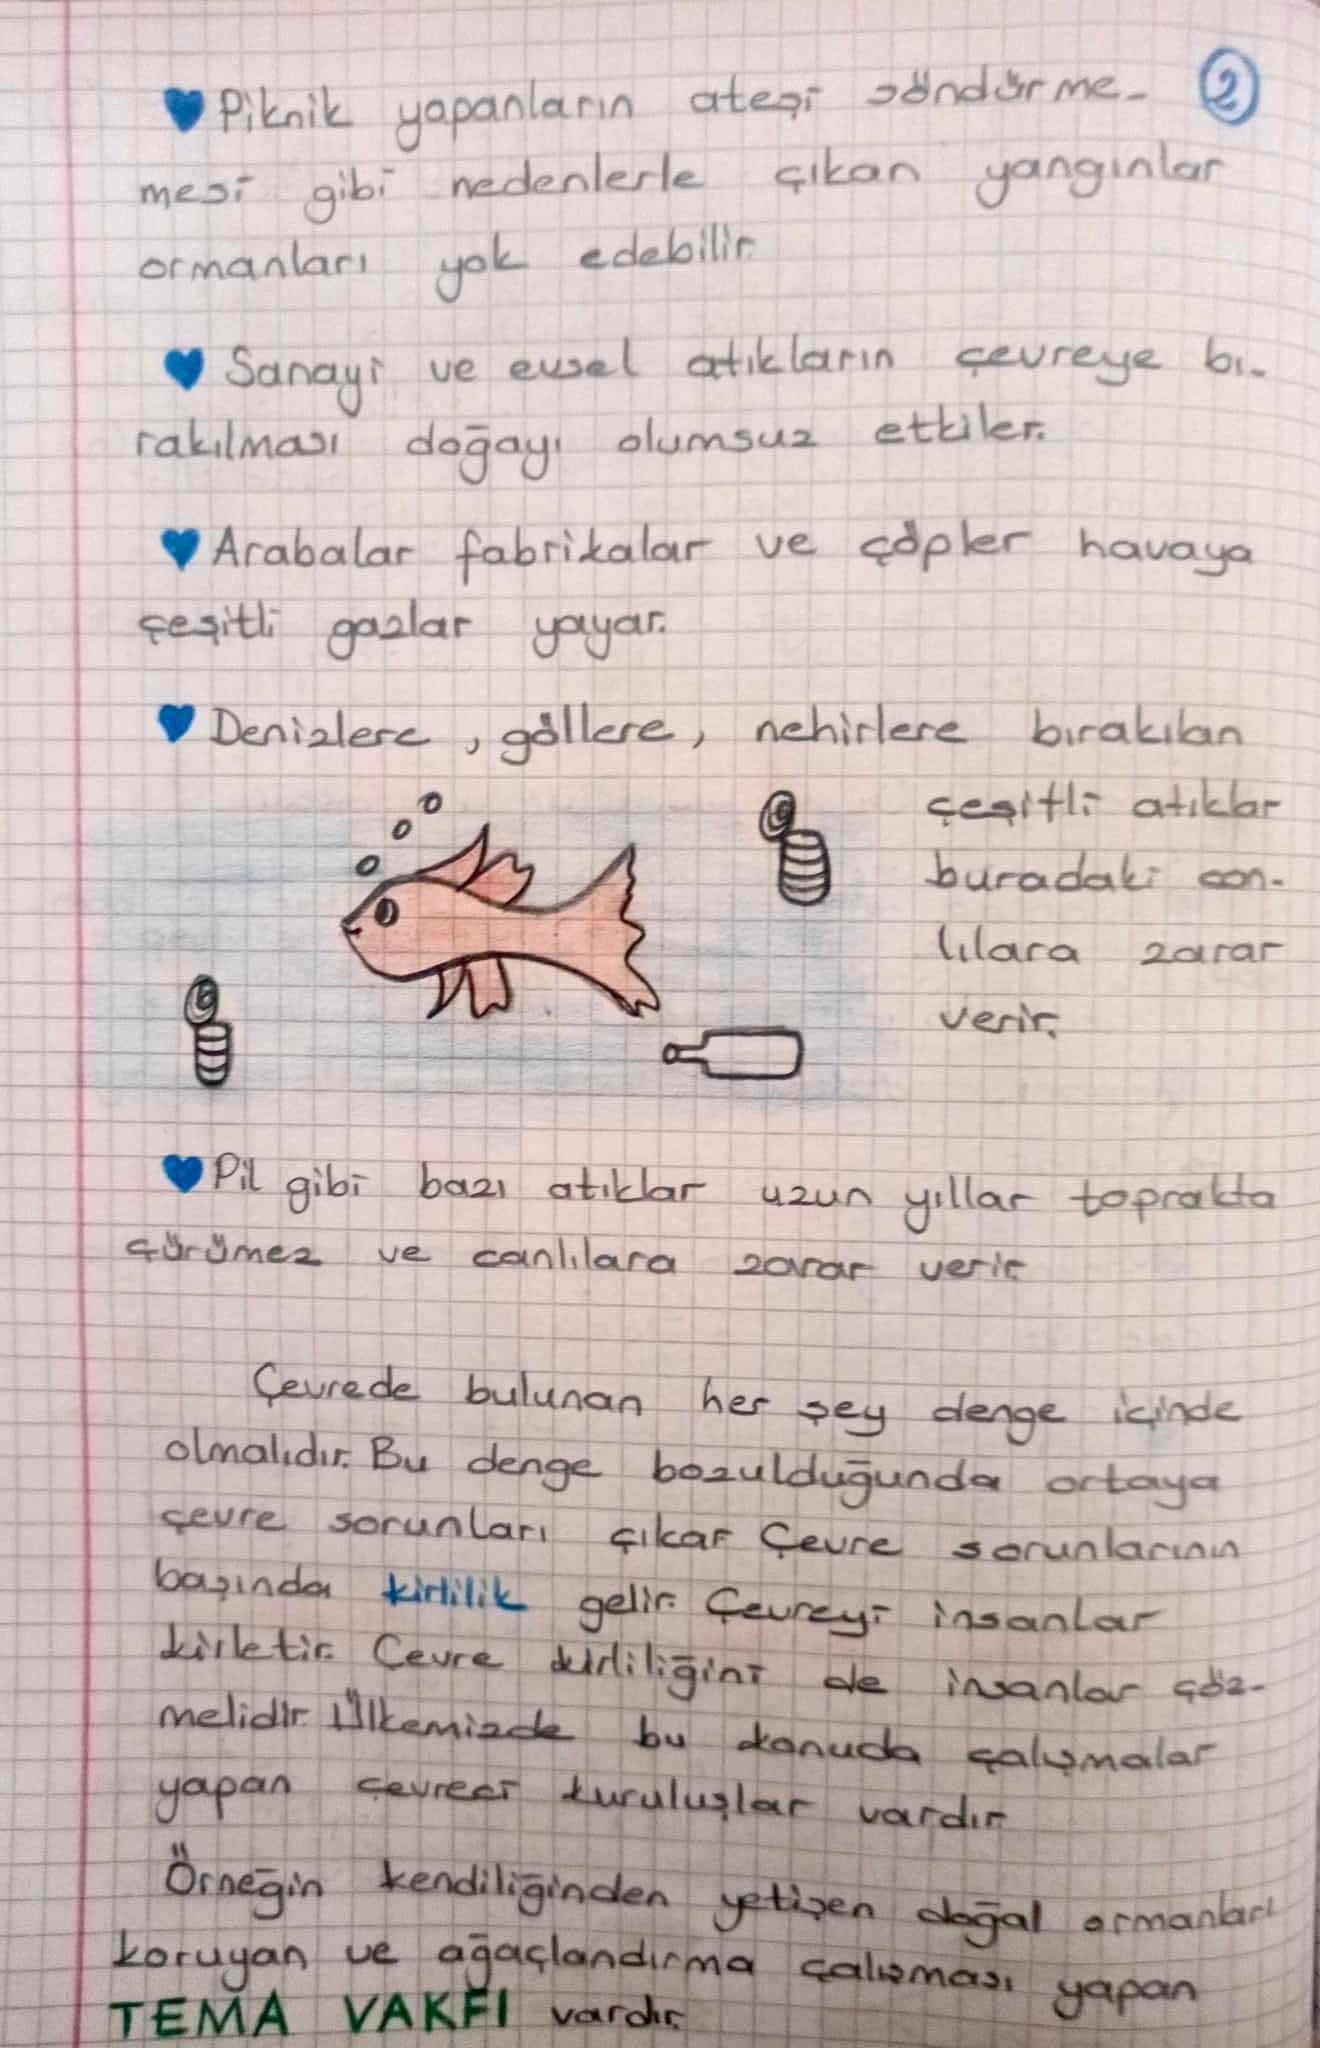 Piknik yapanların ateşi söndürme- 2
mesi gibi nedenlerle çıkan yangınlar
ormanları yok edebilir.
Sanayi ve evsel atıkların çevreye bı-
rakılması doğayı olumsuz etkiler.
Arabalar fabrikalar ve çöpler havaya
çeşitli gazlar yayar.
Denizlere, göllere, nehirlere bırakılan
çeşitli atıklar
buradaki can-
lılara zarar
verir.
Pil gibi bazı atıklar uzun yıllar toprakta
çürümez ve canlılara zarar verir.
Çevrede bulunan her şey denge içinde
olmalıdır. Bu denge bozulduğunda ortaya
çevre sorunları çıkar Çevre sorunlarının
başında kirlilik gelir. Çevreyi insanlar
kirletir. Çevre kirliliğini de insanlar çöz-
melidir. Ülkemizde bu konuda çalışmalar
yapan çevreci kuruluşlar vardır
Örneğin kendiliğinden yetişen doğal ormanları
koruyan ve ağaçlandırma çalışması yapan
TEMA VAKFI vardır.